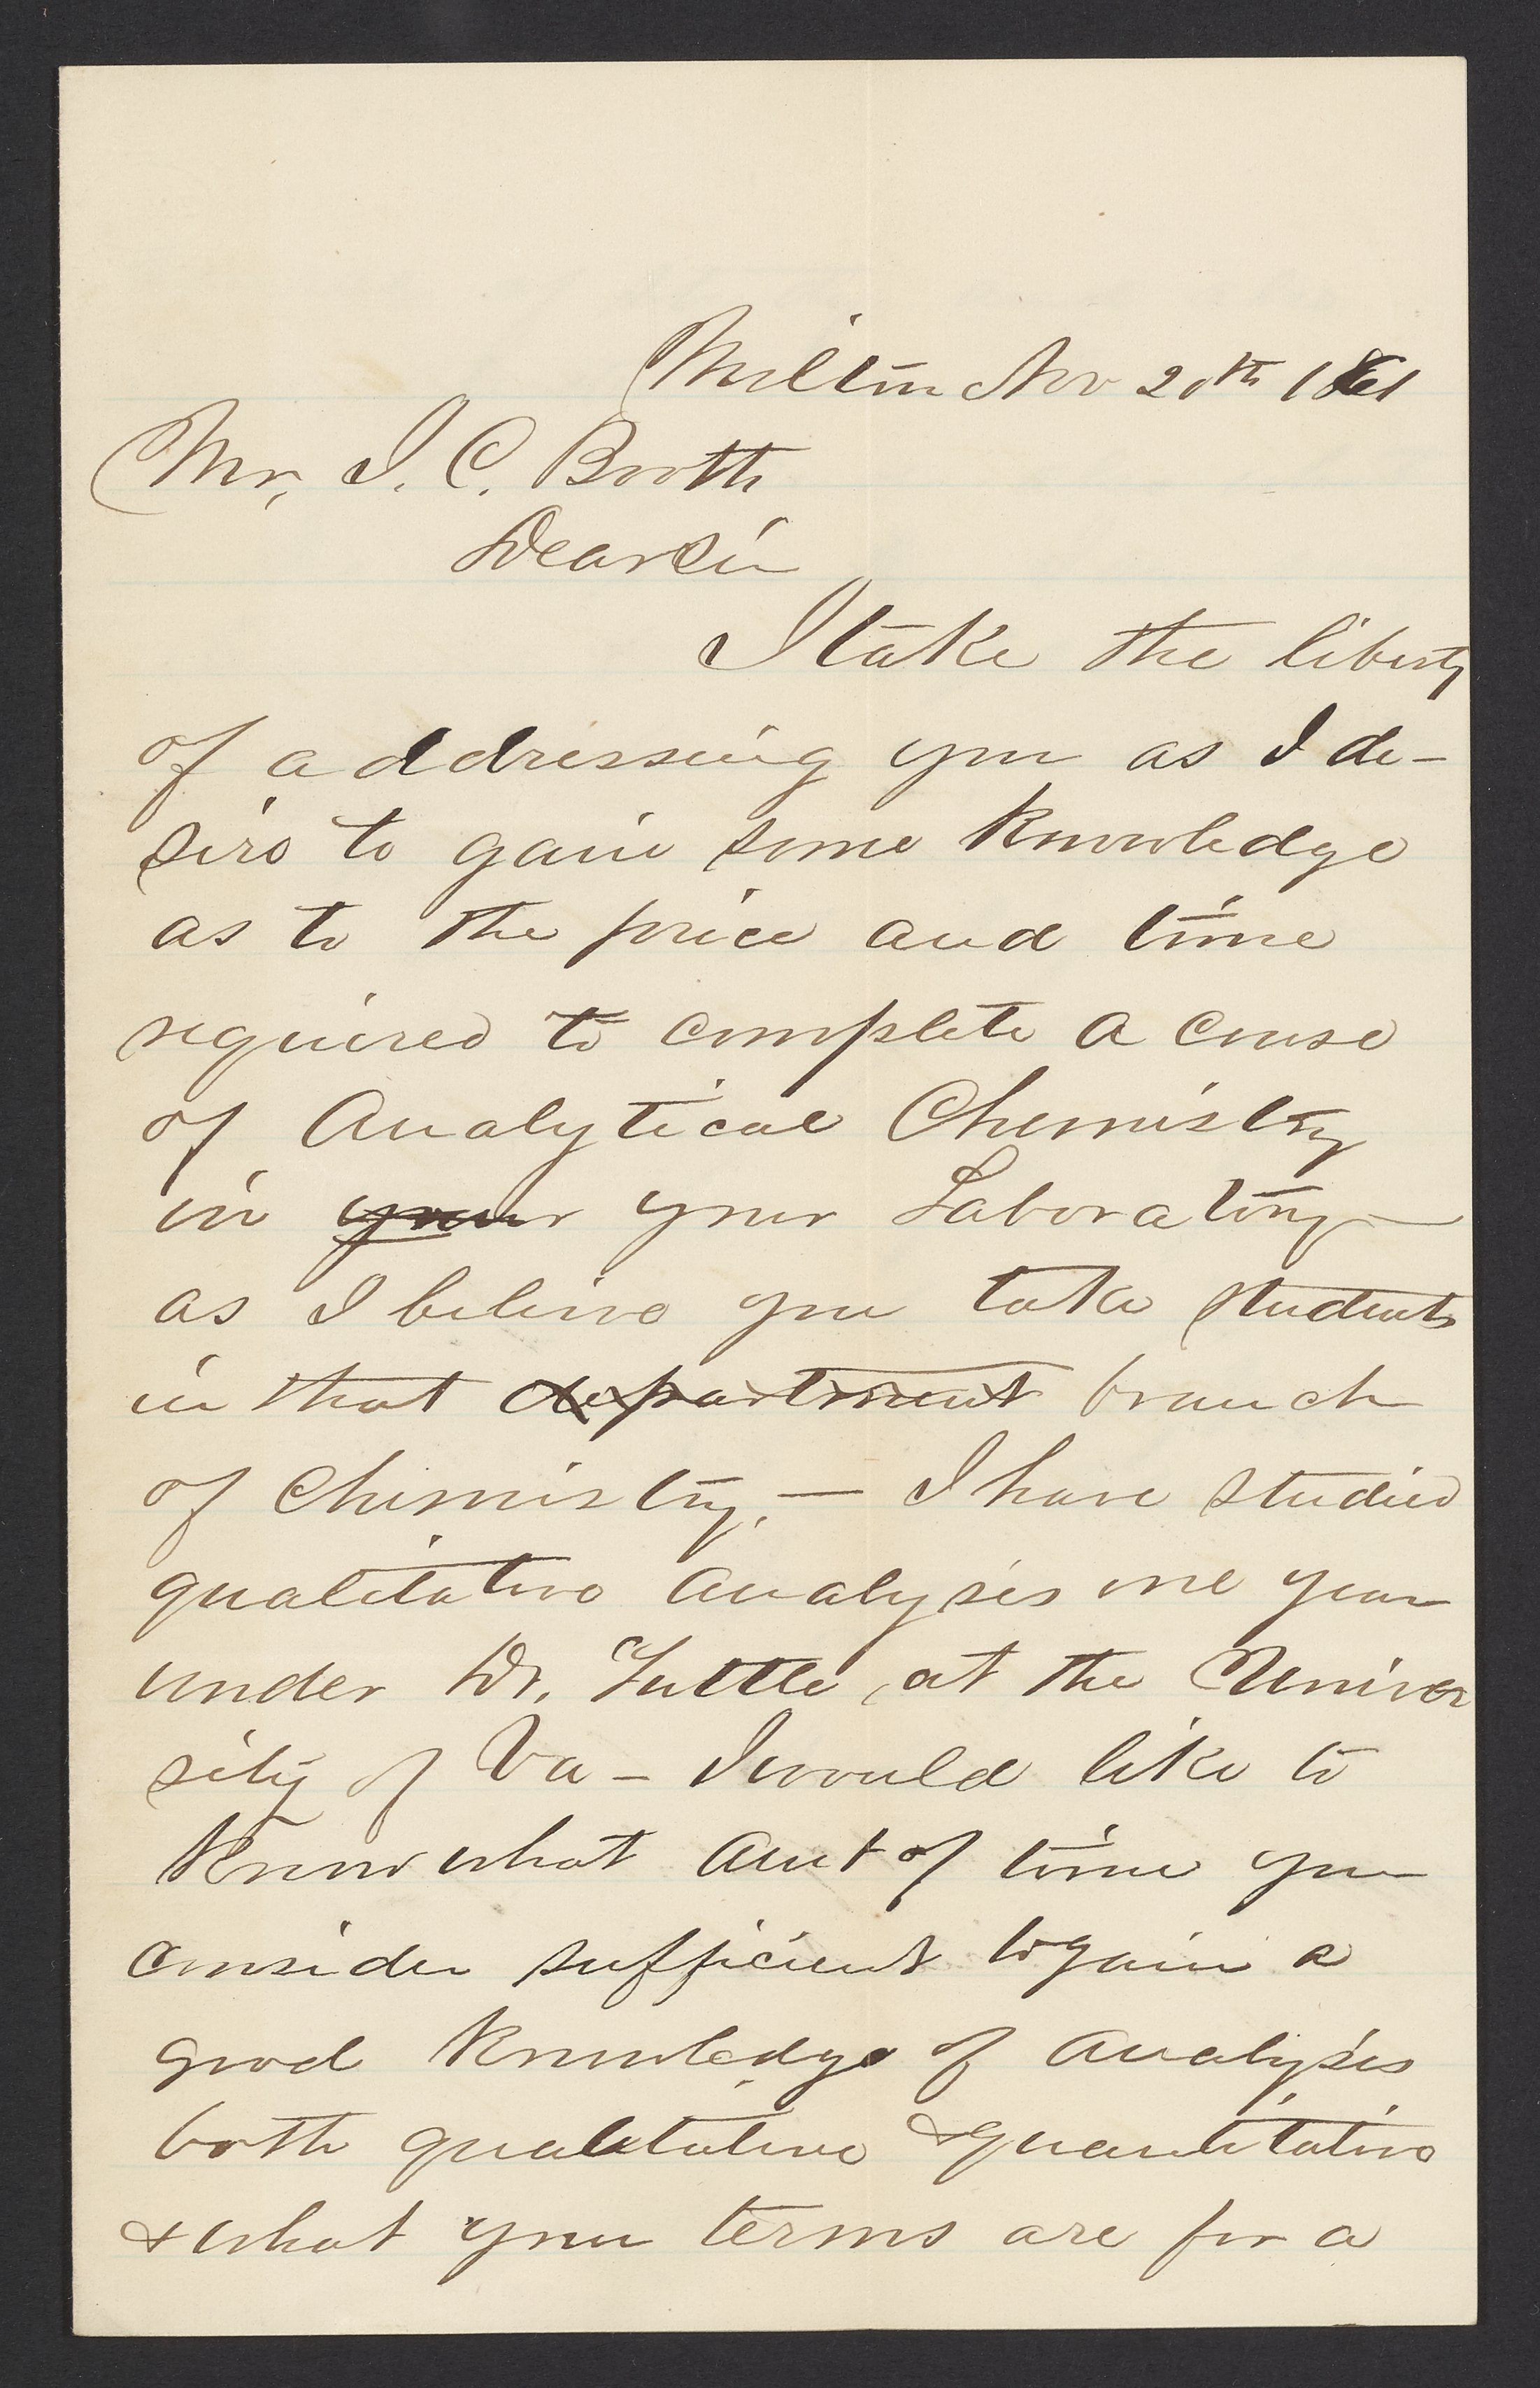 Milton Nov 20th 1861
Mr. J. C. Booth
Dear Sir
I take the liberty
of addressing you as I de-
sire to gain some knowledge
as to the price and time
required to complete a course
of Analytical Chemistry
in your your Laboratory —
as I believe you take students
in that department branch
of Chemistry, — I have studied
qualitative analysis one year
under Dr. Tuttle, at the Univer
sity of Va — I would like to
Know what amt of time you
consider sufficient to gain a
good knowledge of analysis
both qualitative & quantitative
& what your terms are for a